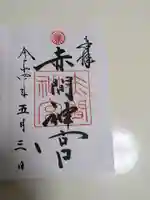 奉拝
赤間神宮
令和四年五月三日